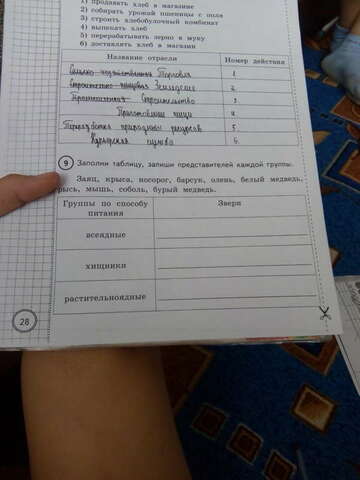 1) продавать хлеб в магазине
2) собирать урожай пшеницы с поля
3) строить хлебобулочный комбинат
4) выпекать хлеб
5) перерабатывать зерно в муку
6) доставлять хлеб в магазин
Название отрасли Номер действия
Торговля 1
Земледелие 2
Промышленная Строительство 3
Приготовление пищи 4
природных ресурсов 5
6
9 Заполни таблицу, запиши представителей каждой группы.
Заяц, крыса, носорог, барсук, олень, белый медведь,
рысь, мышь, соболь, бурый медведь.
Группы по способу питания Звери
всеядные
хищники
растительноядные
28